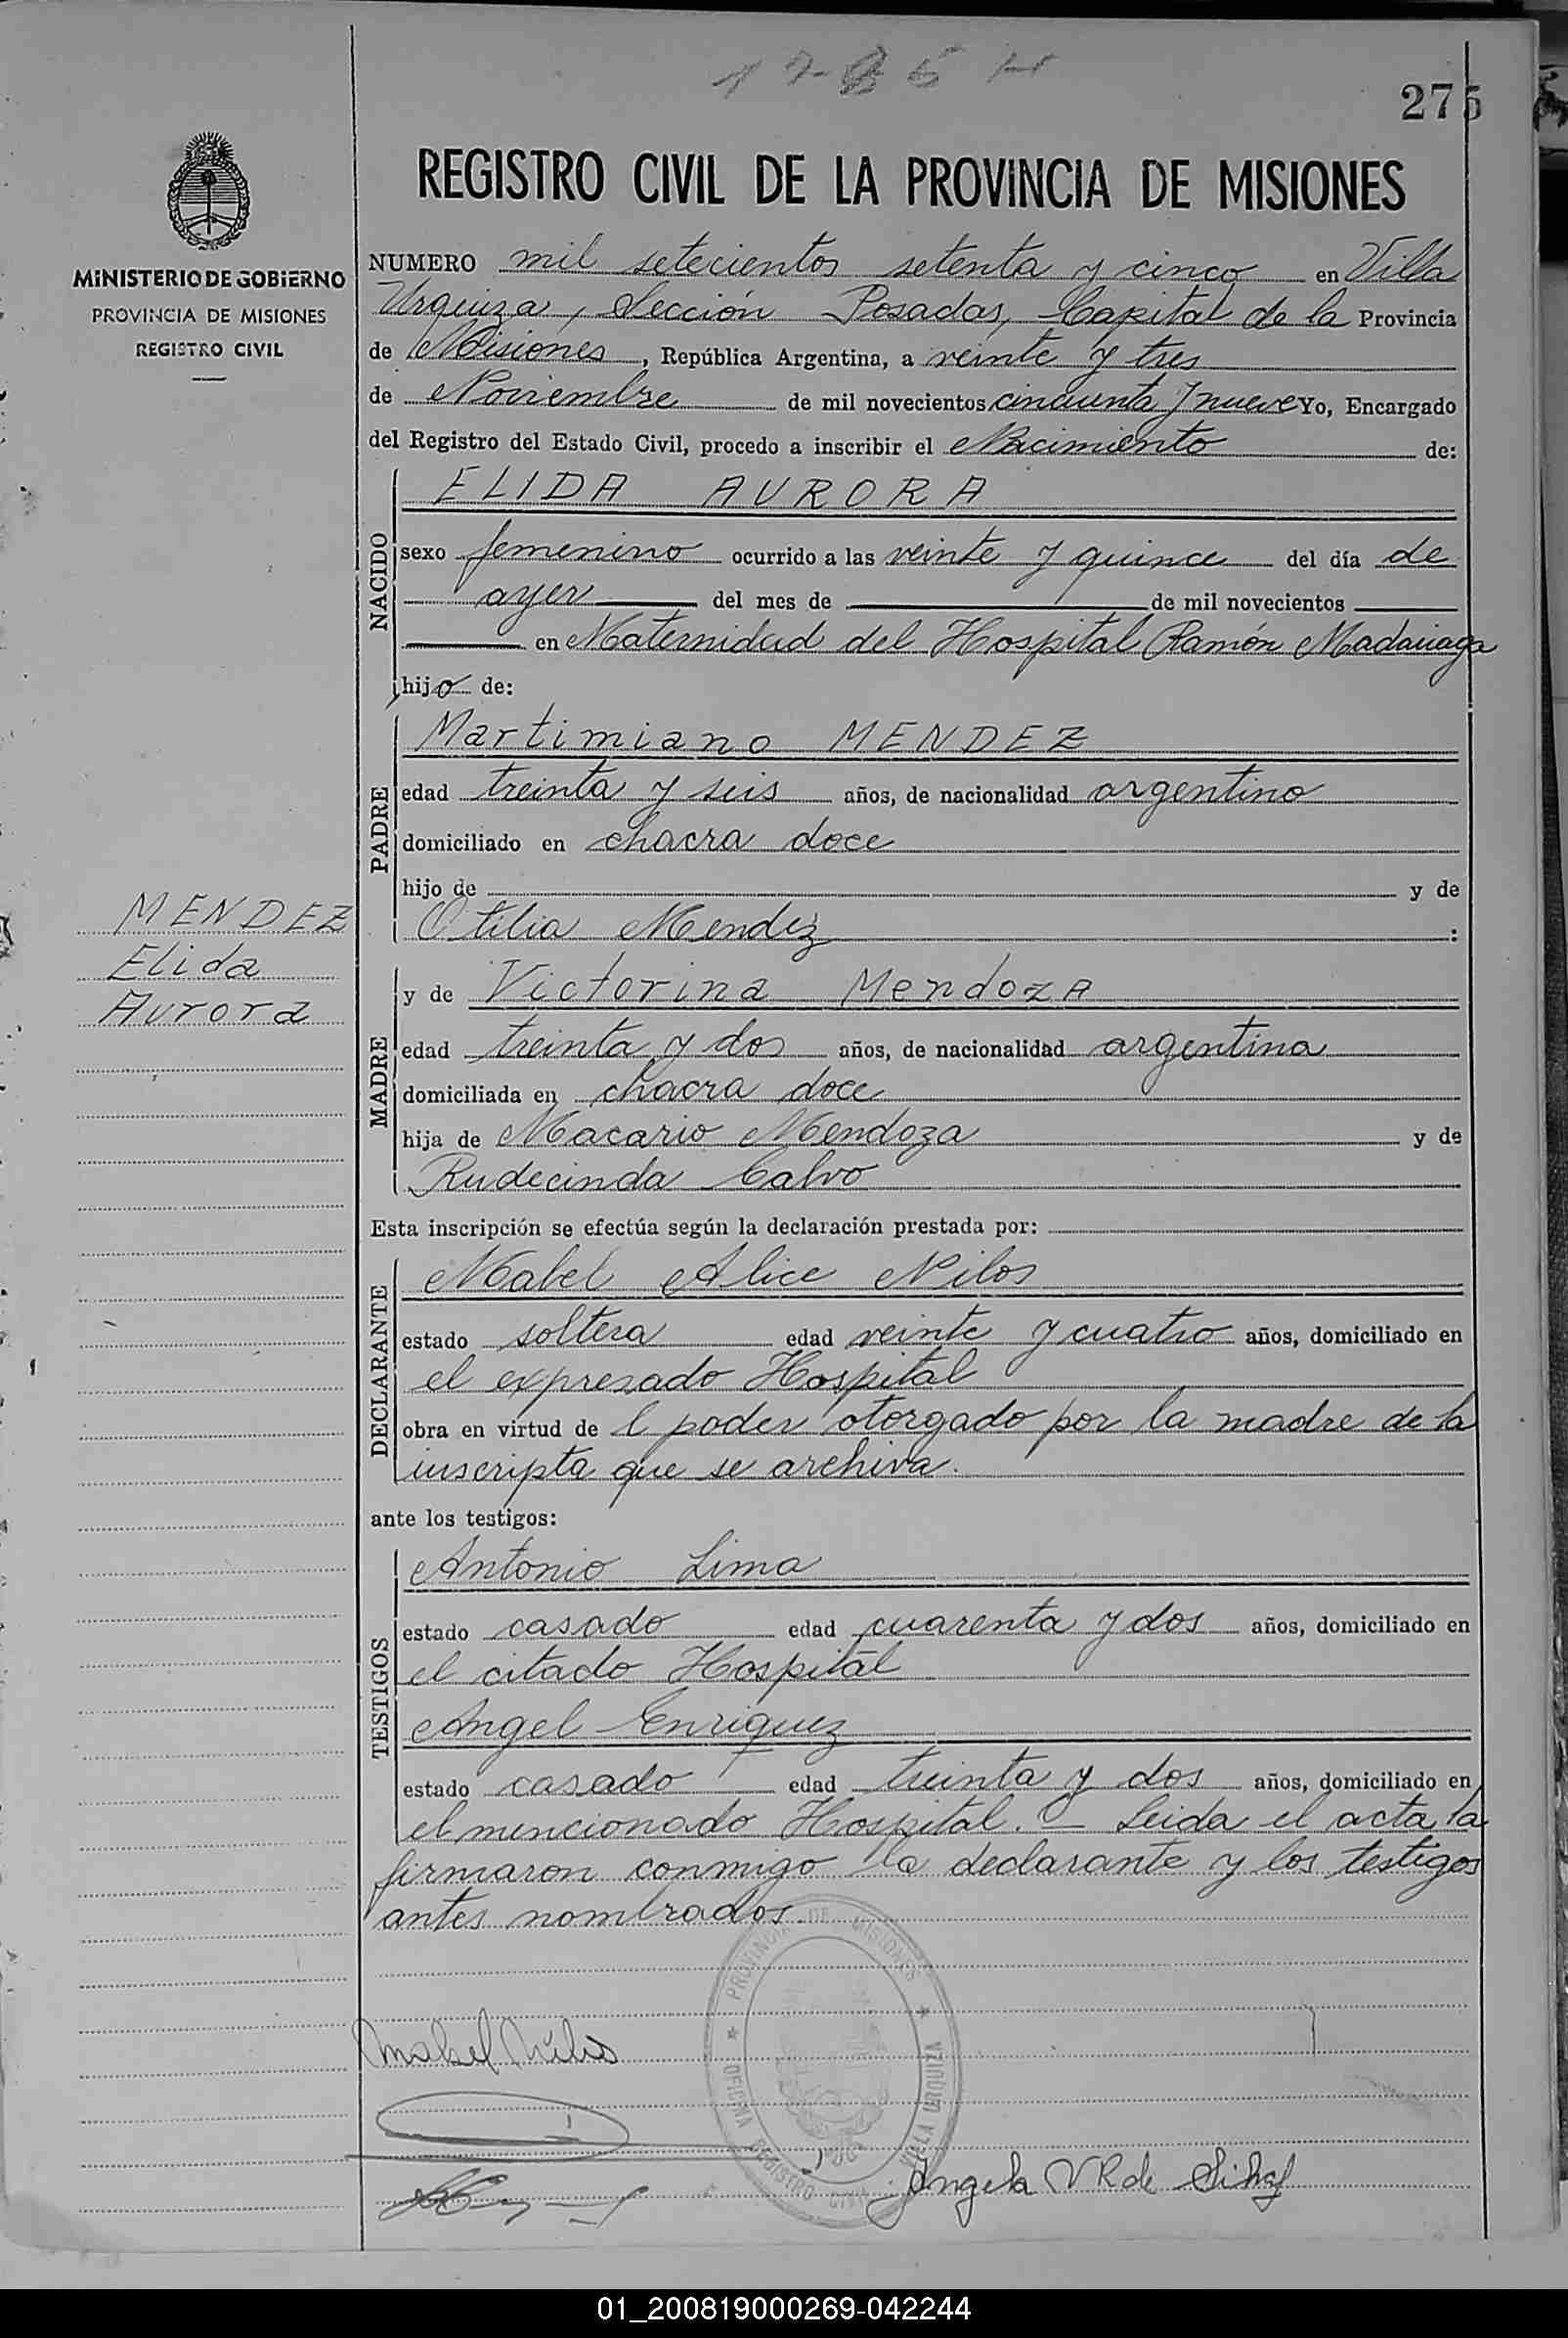 275
REGISTRO CIVIL DE LA PROVINCIA DE MISIONES
MINISTERIO DE GOBIERNO
PROVINCIA DE MISIONES
REGISTRO CIVIL
NUMERO mil setecientos setenta y cinco en Villa
Urquiza, Sección Posadas, Capital de la Provincia
de Misiones, República Argentina, a veinte y tres
de Noviembre de mil novecientos cincuenta y nueve Yo, Encargado
del Registro del Estado Civil, procedo a inscribir el Nacimiento de:
NACIDO
ELIDA AURORA
sexo femenino ocurrido a las veinte y quince del día de
ayer del mes de de mil novecientos
en Maternidad del Hospital Ramón Madariaga
hijo de:
PADRE
Martimiano MENDEZ
edad treinta y seis años, de nacionalidad argentino
domiciliado en chacra doce
hijo de y de
Otilia Mendez :
MENDEZ
Elida
Aurora
MADRE
y de Victorina MendozA
edad treinta y dos años, de nacionalidad argentina
domiciliada en chacra doce
hija de Macario Mendoza y de
Rudecinda Calvo
Esta inscripción se efectúa según la declaración prestada por:
DECLARANTE
Mabel Alice Nilos
estado soltera edad veinte y cuatro años, domiciliado en
el expresado Hospital
obra en virtud de l poder otorgado por la madre de la
inscripta que se archiva.
ante los testigos:
TESTIGOS
Antonio Lima
estado casado edad cuarenta y dos años, domiciliado en
el citado Hospital
Angel Enriquez
estado casado edad treinta y dos años, domiciliado en
el mencionado Hospital. — Leida el acta, la
firmaron conmigo la declarante y los testigos
antes nombrados.
PROVINCIA DE MISIONES
OFICINA REGISTRO CIVIL VILLA URQUIZA
Mabel Nilos
Angela V R de
01_200819000269-042244